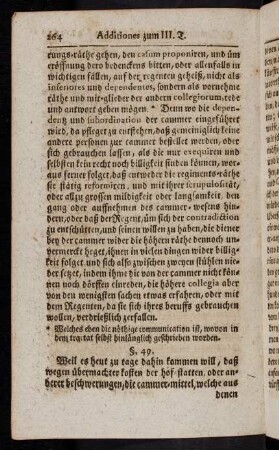 264 Additiones zum III. T.
rungs-räthe gehen, den casum proponiren, und üm
eröffnung dero bedenckens bitten, oder allenfalls in
wichtigen fällen, auf der regenten geheiß, nicht als
inferiores und dependentes, sondern als vornehme
räthe und mit-glieder der andern collegiorum, rede
und antwort geben mögen. * Denn wo die depen-
dentz und subordination der cammer eingeführet
wird, da pfleget zu entstehen, daß gemeiniglich keine
andere personen zur cammer bestellet werden, oder
sich gebrauchen lassen, als die nur exequiren und
selbsten kein recht noch billigkeit finden können, wor-
aus ferner folget, daß entweder die regiments-räthe
sie stätig reformiren, und mit ihrer scrupulosität,
oder allzu grossen mildigkeit oder langsamkeit, den
gang oder auffnehmen des cammer-wesens hin-
dern, oder daß der Regent, üm sich der contradiction
zu entschütten, und seinen willen zu haben, die diener
bey der cammer wider die höhern räthe dennoch un-
vermerckt heget, ihnen in vielen dingen wider billig-
keit folget, und sich also zwischen zween stühlen nie-
der setzet, indem ihme die von der cammer nicht kön-
nen noch dörffen einreden, die höhere collegia aber
von den wenigsten sachen etwas erfahren, oder mit
dem Regenten, da sie sich ihres beruffs gebrauchen
wollen, verdrießlich zerfallen.
* Welches eben die nöthige communication ist, wovon in
dem tractat selbst hinlänglich geschrieben worden.
§. 49.
Weil es heut zu tage dahin kommen will, daß
wegen übermachter kosten der hof-statten, oder an-
derer beschwerungen, die cammer-mittel, welche aus
denen